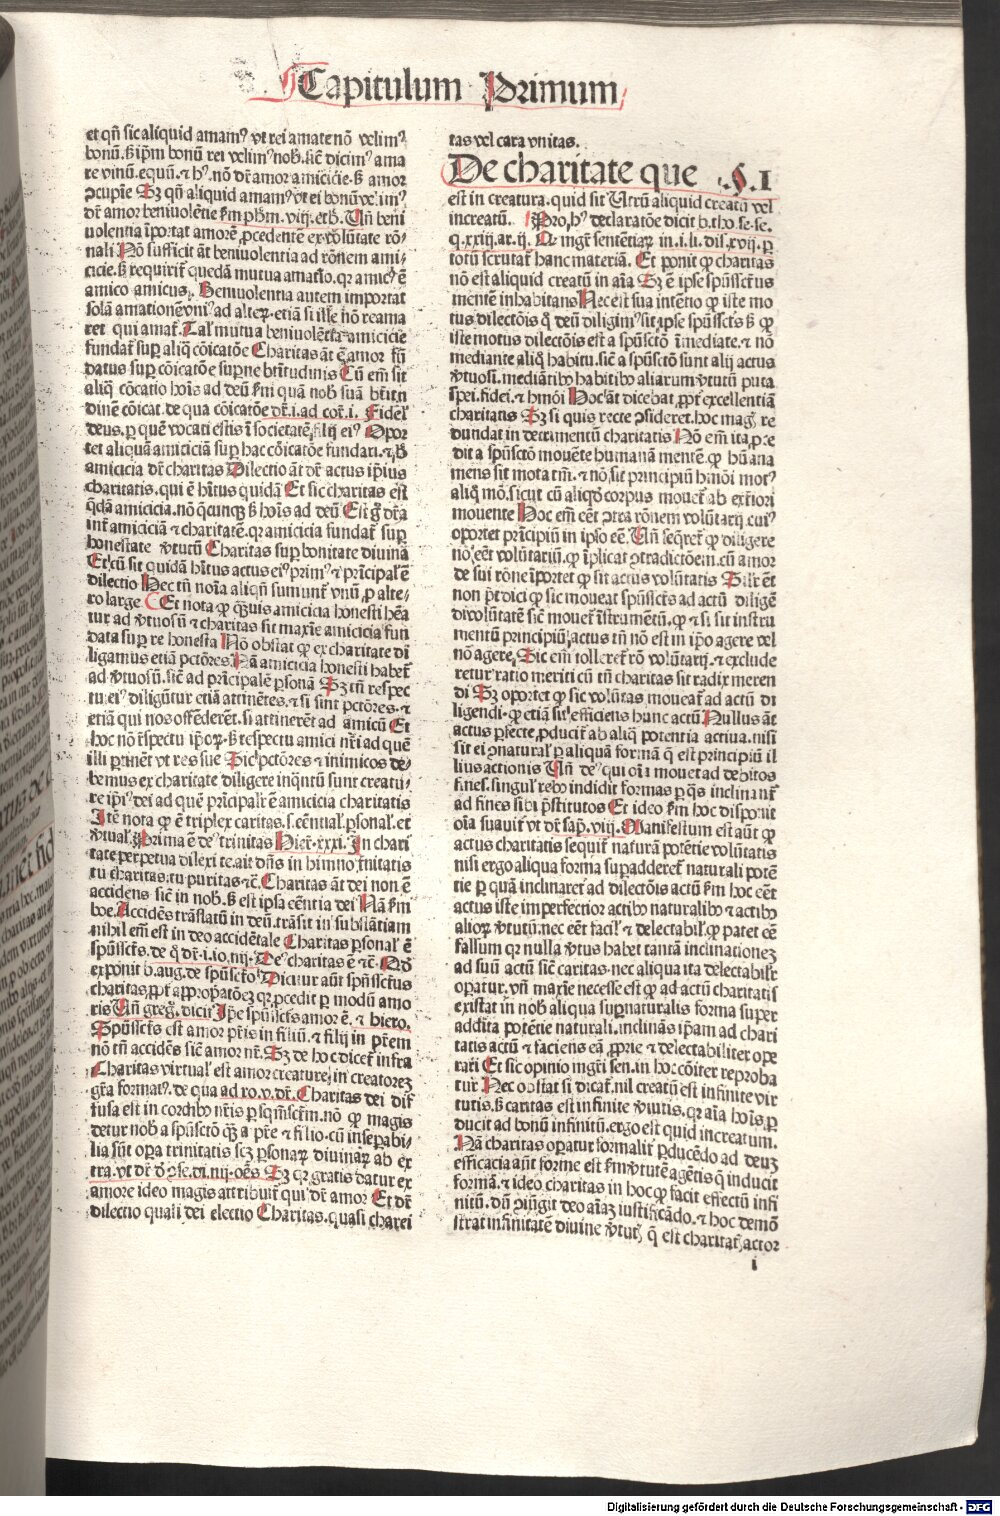 Capitulum Primum
et qñ sic aliquid amamꝰ vt rei amate nō velimꝰ
bonū. ß ip̄m bonū rei velimꝰ nob̄. sic̄ dicimꝰ ama
re vinū. equū. ⁊ hꝰ. nō dr̄ amor amicicie. ß amor
ꝯcupīe Sʒ qñ aliquid amamꝰ vt ei bonū velimꝰ
dr̄ amor beniuolētie ẜm ph̄m. viij. eth̄. Vn̄ beni
uolentia īportat amorē ꝓcedentē ex volūtate rō⸗
nali Nō sufficit āt beniuolentia ad rōnem ami⸗
cicie. ß requirit̄ quedā mutua amatio. qꝛ amicꝰ ē
amico amicus. Beniuolentia autem importat
solā amationē vniꝰ ad alteꝝ. etiā si ille nō reama
ret qui amat̄. Tal̄ mutua beniuolētia amicicie
fundat̄ suꝑ aliq̄ cōicatōe Charitas āt ē amor fū
datus suꝑ cōicatōe supne btītudinis Cū em̄ sit
aliq̄ cōcatio hoīs ad deū ẜm quā nob̄ suā btītn
dinē cōicat. de qua cōicatōe dr̄. i. ad cor̄. i. Fidel̄
deus. ꝑ quē vocati estis ī societatē filij eiꝰ Opor
tet aliquā amiciciā suꝑ hac cōicatōe fundari. ⁊ ß
amicicia dr̄ charitas Dilectio āt dr̄ actus ip̄ius
charitatis. qui ē hītus quidā Et sic charitas est
q̄dā amicicia. nō q̄cunqꝫ ß hoīs ad deū Est g̊ dr̄a
int̄ amiciciā ⁊ charitatē. qꝛ amicicia fundat̄ suꝑ
honestate v̄tutū Charitas suꝑ bonitate diuina
Et cū sit quidā hītus actus eiꝰ primꝰ ⁊ pr̄icipal̄ ē
dilectio Nec tn̄ noīa aliqn̄ sumunt̄ vnū ꝓ alte⸗
ro large Et nota ꝙ q̄uis amicicia honesti hēa
tur ad v̄tuosū ⁊ charitas sit maxīe amicicia fun
data suꝑ re honesta Nō obstat ꝙ ex charitate di
ligamus etiā pctōres. Nā amicicia honesti habet̄
ad v̄tuosū. sic̄ ad pr̄icipalē ꝑsonā Sʒ tn̄ respec
tu eiꝰ diligūtur etiā attinētes. ⁊ si sint pctōres. ⁊
etiā qui nos offēderēt. si attinerēt ad amicū Et
hoc nō r̄spectu ip̄oꝝ. ß respectu amici nr̄i ad quē
illi ꝑtinēt vt res sue Sic pctōres ⁊ inimicos de⸗
bemus ex charitate diligere inqntū sunt creatu⸗
re ip̄iꝰ dei ad quē pr̄icipalr̄ ē amicicia charitatis
Itē nota ꝙ ē triplex caritas. s. cēntial. ꝑsonal̄. et
v̄tual̄. Prima ē deꝰ trinitas Hier̄. xxxi. In chari
tate perpetua dilexi te. ait dn̄s in himno t̄nitatis
tu charitas. tu puritas ⁊c̄. Charitas āt dei non ē
accidens sic̄ in nob̄. ß est ipsa cēntia dei Nā ẜm
boe. Accidēs trāslatū in deū. trāsit in substātiam
nihil em̄ est in deo accidētale Charitas ꝑsonal̄ ē
spūsscts. de q̄ dr̄. i. io. iiij. Deꝰ charitas ē ⁊c̄. Qd̄
exponit b. aug. de spūscto Dicitur aūt spūsctus
charitas. ꝓpt̄ aꝓpriatōeʒ qꝛ ꝓcedit ꝑ modū amo
ris Vn̄ greg̊. dicit Ip̄e spūsscts amor ē. ⁊ hiero.
Spūsscts est amor p̄ris in filiū. ⁊ filij in p̄rem
nō tn̄ accidēs sic̄ amor nr̄. Sʒ de hoc dicet̄ infra
Charitas virtual̄ est amor creature in creatoreʒ
gr̄a formatꝰ. de qua ad ro. v. dr̄. Charitas dei dif
fusa est in cordibꝰ nr̄is ꝑ sꝑm̄sctm̄. nō ꝙ magis
detur nob̄ a spūsctō q̄ʒ a p̄re ⁊ filio. cū inseꝑabi⸗
lia sūt oꝑa trinitatis scʒ ꝑsonaꝝ diuinaꝝ ab ex
tra. vt dr̄ d̄ ꝯse. di. iiij. oēs Sʒ qꝛ gratis datur ex
amore ideo magis attribuit̄ qui dr̄ amor Et dr̄
dilectio quali dei electio Charitas. quasi charei
tas vel cara vnitas.
De charitate que .§.1
est in creatura. quid sit Vtrū aliquid creatū vel
increatū. Pro hꝰ declaratōe dicit b. tho. se. se.
q. xxiij. ar. ij. Qꝛ mgr̄ sententiaꝝ in. i. li. dis. xvij. ꝑ
totū scrutat̄ hanc materiā. Et ponit ꝙ charitas
nō est aliquid creatū in aīa Sʒ ē ipse spūssctus
mentē inhabitans Nec est sua intētio ꝙ iste mo
tus dilectōis q̄ deū diligimꝰ sit ipse spūsscts ß ꝙ
iste motus dilectōis est a spūsctō īmediate. ⁊ nō
mediante aliq̄ habitu. sic̄ a spūsctō sunt alij actus
v̄tuosi. mediātibꝰ habitibꝰ aliarum v̄tutū puta
spei. fidei. ⁊ hmōi Hoc āt dicebat. ꝓpt̄ excellentiā
charitatis Sʒ si quis recte ꝯsideret. hoc mag̊ re
dundat in detrimentū charitatis Nō em̄ ita ꝓce
dit a spūsctō mouēte humanā mentē ꝙ hūana
mens sit mota tm̄. ⁊ nō sit principiū hmōi motꝰ
aliq̄ mō. sicut cū aliqd̄ corpus mouet̄ ab ext̄iori
mouente Hoc em̄ eēt ꝯtra rōnem volūtarij. cuiꝰ
oportet pr̄icipiū in ipso eē. Vn̄ seqret̄ ꝙ diligere
nō eēt volūtariū. ꝙ īplicat ꝯtradictōem. cū amor
de sui rōne īportet ꝙ sit actus volūtatis Silr̄ ēt
non pt̄ dici ꝙ sic moueat spūsscts ad actū diligē
di volūtatē sic̄ mouet̄ īstrumētū. ꝙ ⁊ si sit instru
mentū principiū. actus tn̄ nō est in ip̄o agere vel
nō agere. Sic em̄ tolleret̄ rō volūtarij. ⁊ exclude
retur ratio meriti cū tn̄ charitas sit radix meren
di Sʒ oportet ꝙ sic volūtas moueat̄ ad actū di
ligendi. ꝙ etiā sit efficiens hunc actū Nullus āt
actus ꝑfecte ꝓducit̄ ab aliq̄ potentia actiua. nisi
sit ei ꝯnatural̄ ꝑ aliquā formā q̄ est principiū il
lius actionis Vn̄ deꝰ qui oīa mouet ad debitos
fines. singul̄ rebꝰ indidit formas ꝑ q̄s inclinant̄
ad fines sibi p̄stitutos Et ideo ẜm hoc disponit
oīa suauit̄ vt dr̄ sap̄. viij. Manifestum est aūt ꝙ
actus charitatis seqūit̄ naturā potētie volūtatis
nisi ergo aliqua forma suꝑadderet̄ naturali potē
tie ꝑ quā inclinaret̄ ad dilectōis actū ẜm hoc eēt
actus iste imperfectior actibꝰ naturalibꝰ ⁊ actibꝰ
alioꝝ v̄tutū. nec eēt facil̄ ⁊ delectabil̄. ꝙ patet eē
falsum qꝛ nulla v̄tus habet tantā inclinationeʒ
ad suū actū sic̄ caritas. nec aliqua ita delectabilr̄
oꝑatur. vn̄ maxīe necesse est ꝙ ad actū charitatis
existat in nob̄ aliqua suꝑnaturalis forma super
addita potētie naturali. inclināns ip̄am ad chari
tatis actū ⁊ faciens eā ꝓprie ⁊ delectabiliter ope
rari Et sic opinio mgr̄i sen. in hoc cōiter reproba
tur Nec obstat si dicat̄. nil creatū est infinite vir
tutis. ß caritas est infinite v̄tutis. qꝛ aīa hoīs ꝑ
ducit ad bonū infinitū. ergo est quid increatum.
Nā charitas oꝑatur formalit̄ ꝓducēdo ad deuʒ
efficacia aūt forme est ẜm v̄tutē agētis q̄ inducit
formā. ⁊ ideo charitas in hoc ꝙ facit effectū infi
nitū. dū ꝯiūgit deo aīaʒ iustificādo. ⁊ hoc demō
strat infinitatē diuine v̄tutꝭ q̄ est charitatꝭ actor
i
Digitalisierung gefördert durch die Deutsche Forschungsgemeinschaft - DFG